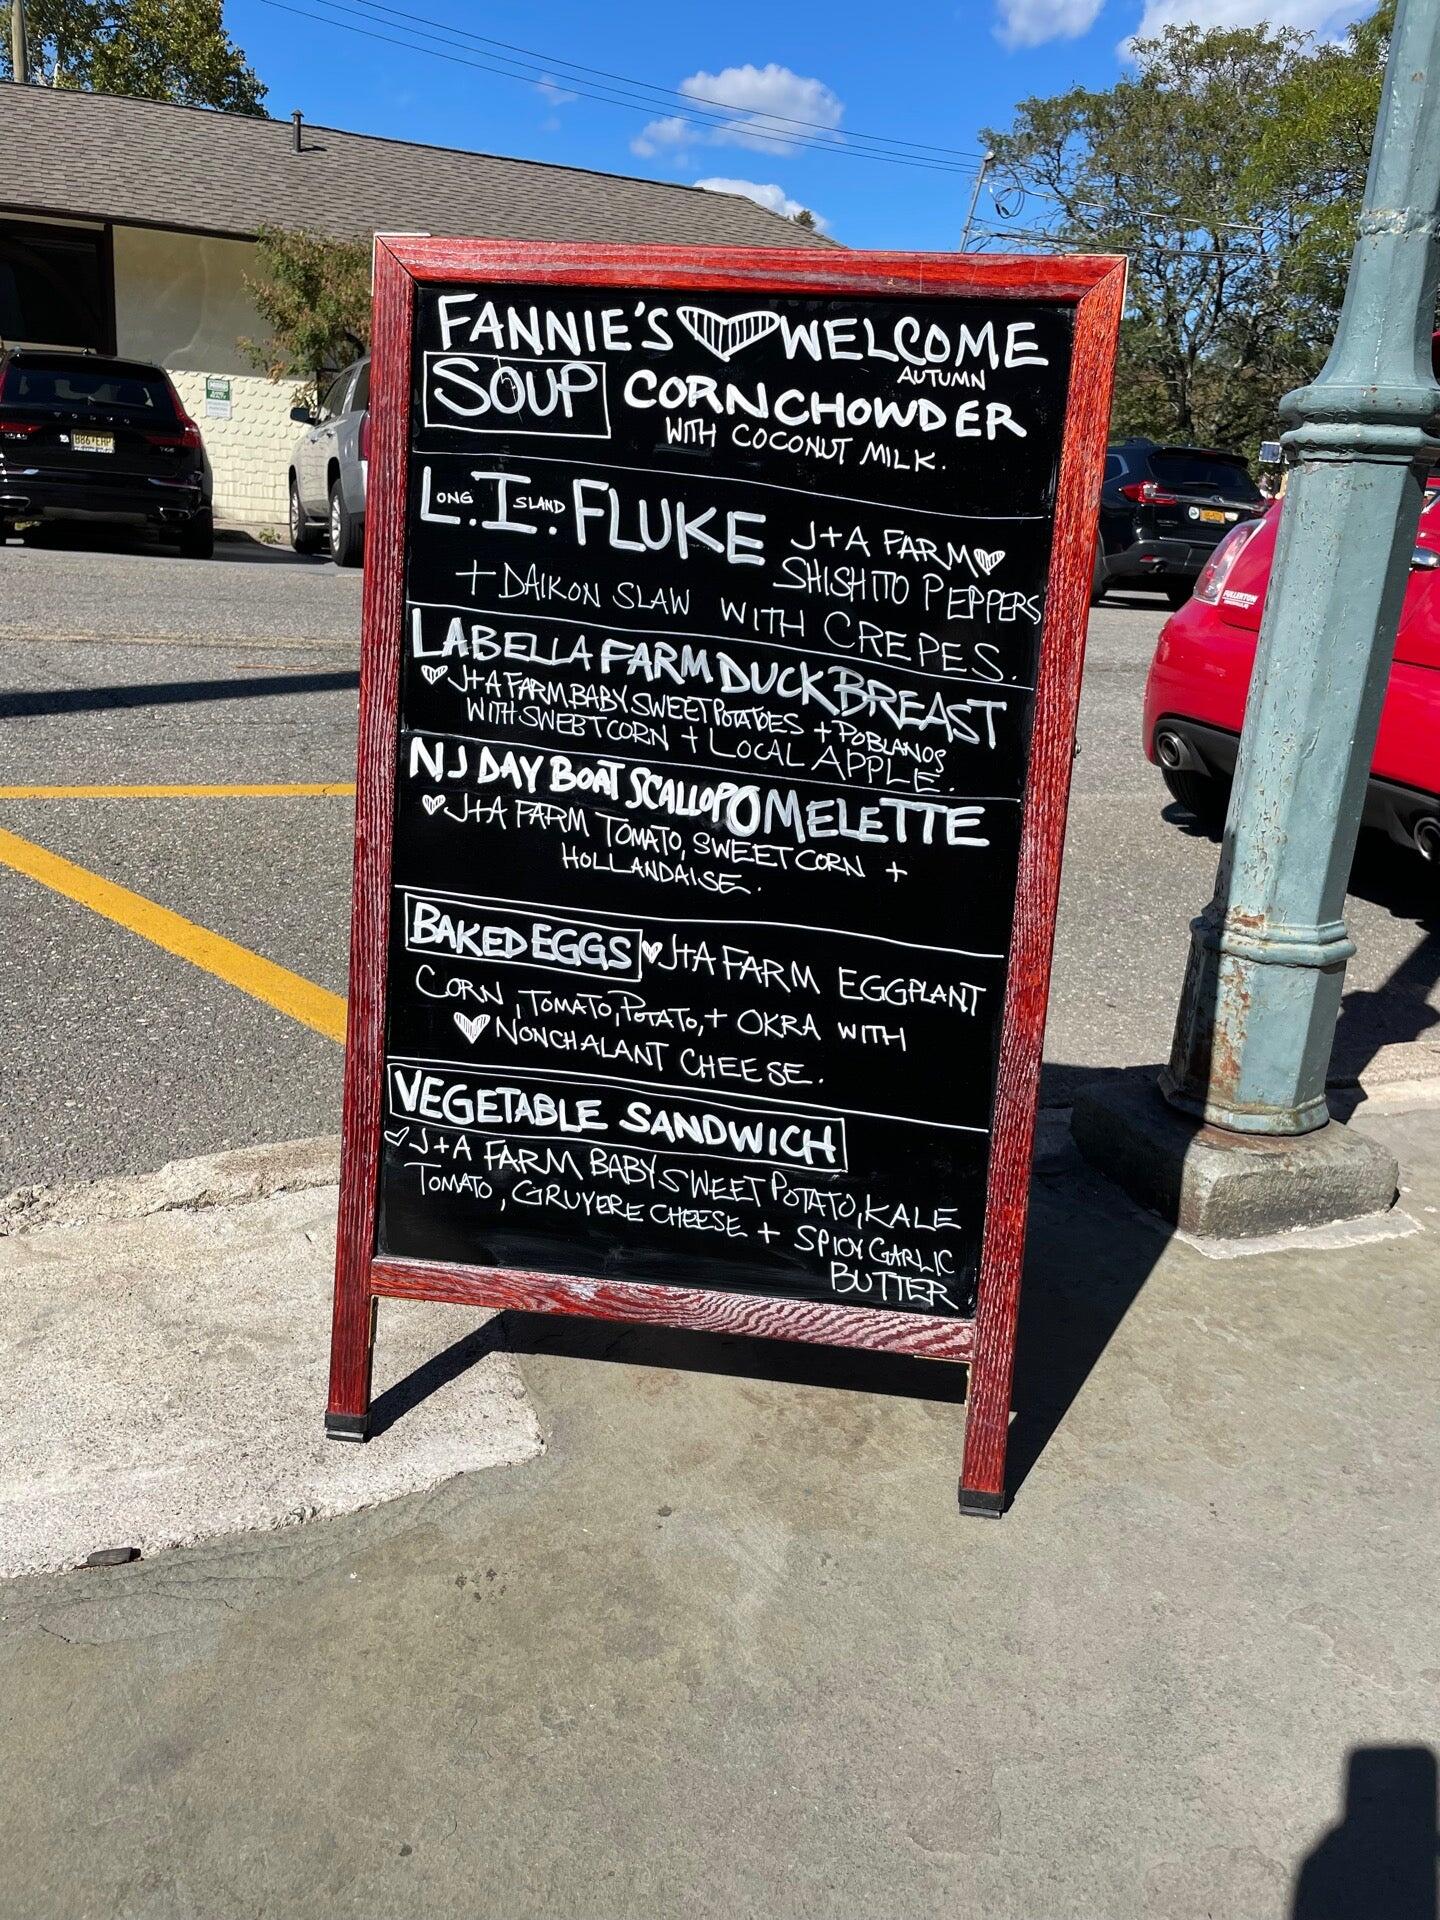 FANNIE'S WELCOME
AUTUMN
SOUP CORN CHOWDER
WITH COCONUT MILK.
LONG ISLAND. FLUKE J+A FARM
SHISHITO PEPPERS
+ DAIKON SLAW WITH CREPES.
LABELLA FARM DUCK BREAST
J+A FARM BABY SWEET POTATOES + POBLANOS
WITH SWEET CORN + LOCAL APPLE.
NJ DAY BOAT SCALLOP OMELETTE
J+A FARM TOMATO, SWEET CORN +
HOLLANDAISE.
BAKED EGGS J+A FARM EGGPLANT
CORN, TOMATO, POTATO, + OKRA WITH
NONCHALANT CHEESE.
VEGETABLE SANDWICH
J+A FARM BABY SWEET POTATO, KALE
TOMATO, GRUYERE CHEESE + SPICY GARLIC
BUTTER
FULLERTON